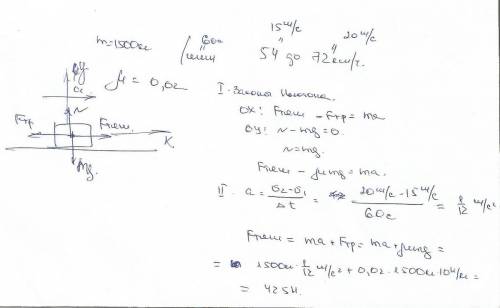 15 м/с 20 м/с
m=1500кг 60с 54 до 72км/ч.
μ = 0,02
y
a
N
Fтр Fтяги X
mg
I. Закона Ньютона.
OX: Fтяги - Fтр = ma
OY: N - mg = 0.
N = mg.
Fтяги - μmg = ma.
II. a = (v₂-v₁)/Δt = (20м/с - 15м/с)/60с = 1/12 м/с²
Fтяги = ma + Fтр = ma + μmg =
= 1500кг · 1/12 м/с² + 0,02 · 1500кг · 10м/с² =
= 425Н.